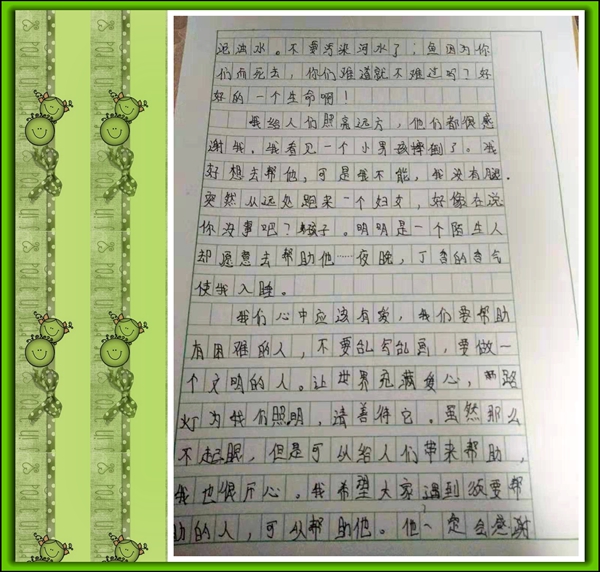 泥浊水。不要污染河水了；鱼因为你
们而死去，你们难道就不难过吗？好
好的一个生命啊！
我给人们照亮远方，他们都很感
谢我，我看见一个小男孩摔倒了。我
好想去帮他，可是我不能，我没有腿.
突然从远处跑来一个妇女，好像在说
你没事吧？孩子。明明是一个陌生人
却愿意去帮助他……夜晚，丁香的香气
使我入睡。
我们心中应该有爱，我们要帮助
有困难的人，不要乱写乱画，要做一
个文明的人。让世界充满爱心，路
灯为我们照明，请善待它。虽然那么
不起眼，但是可以给人们带来帮助，
我也很开心。我希望大家遇到须要帮
助的人，可以帮助他。他一定会感谢